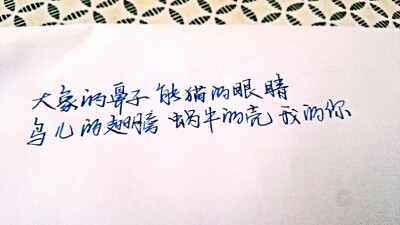 大象的鼻子 熊猫的眼睛
鸟儿的翅膀 蜗牛的壳 我的你